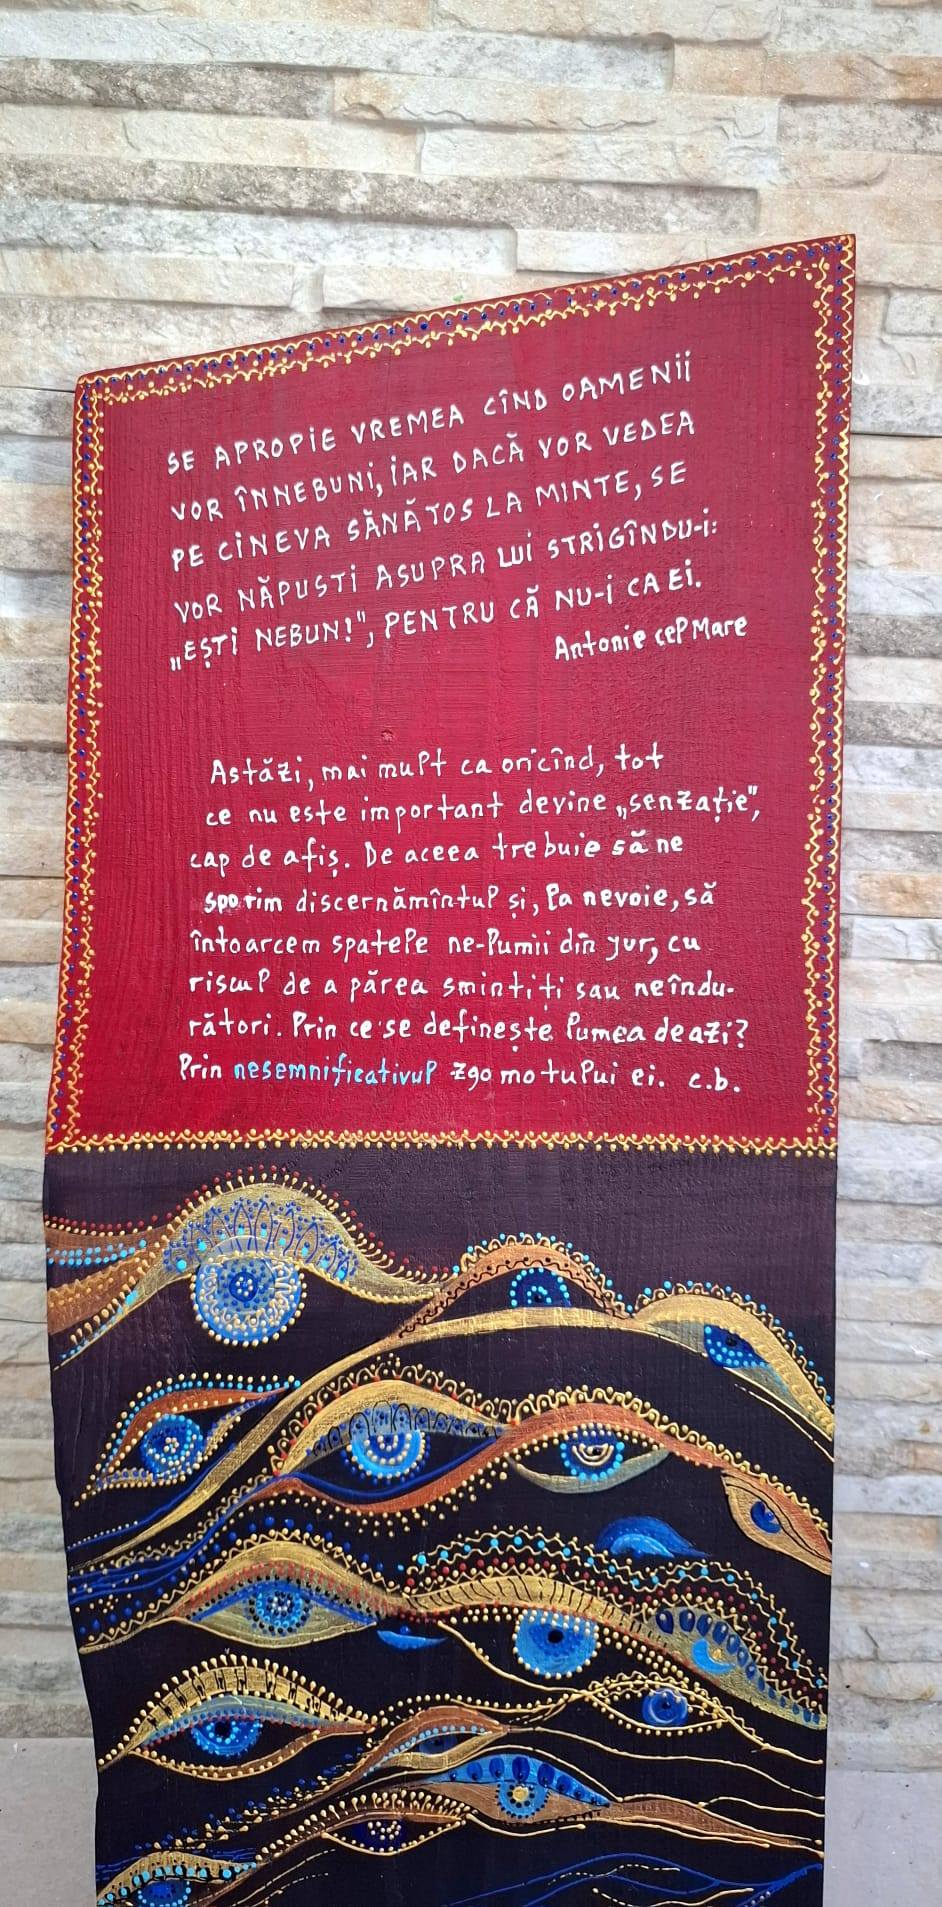 SE APROPIE VREMEA CÎND OAMENII
VOR ÎNNEBUNI, IAR DACĂ VOR VEDEA
PE CINEVA SĂNĂTOS LA MINTE, SE
VOR NĂPUSTI ASUPRA LUI STRIGÎNDU-I:
„EȘTI NEBUN!", PENTRU CĂ NU-I CA EI.
Antonie cel Mare
Astăzi, mai mult ca oricînd, tot
ce nu este important devine „senzație",
cap de afiș. De aceea trebuie să ne
sporim discernămîntul și, la nevoie, să
întoarcem spatele ne-lumii din jur, cu
riscul de a părea smintiți sau neîndu-
rători. Prin ce se definește lumea de azi?
Prin nesemnificativul zgomotului ei. c.b.